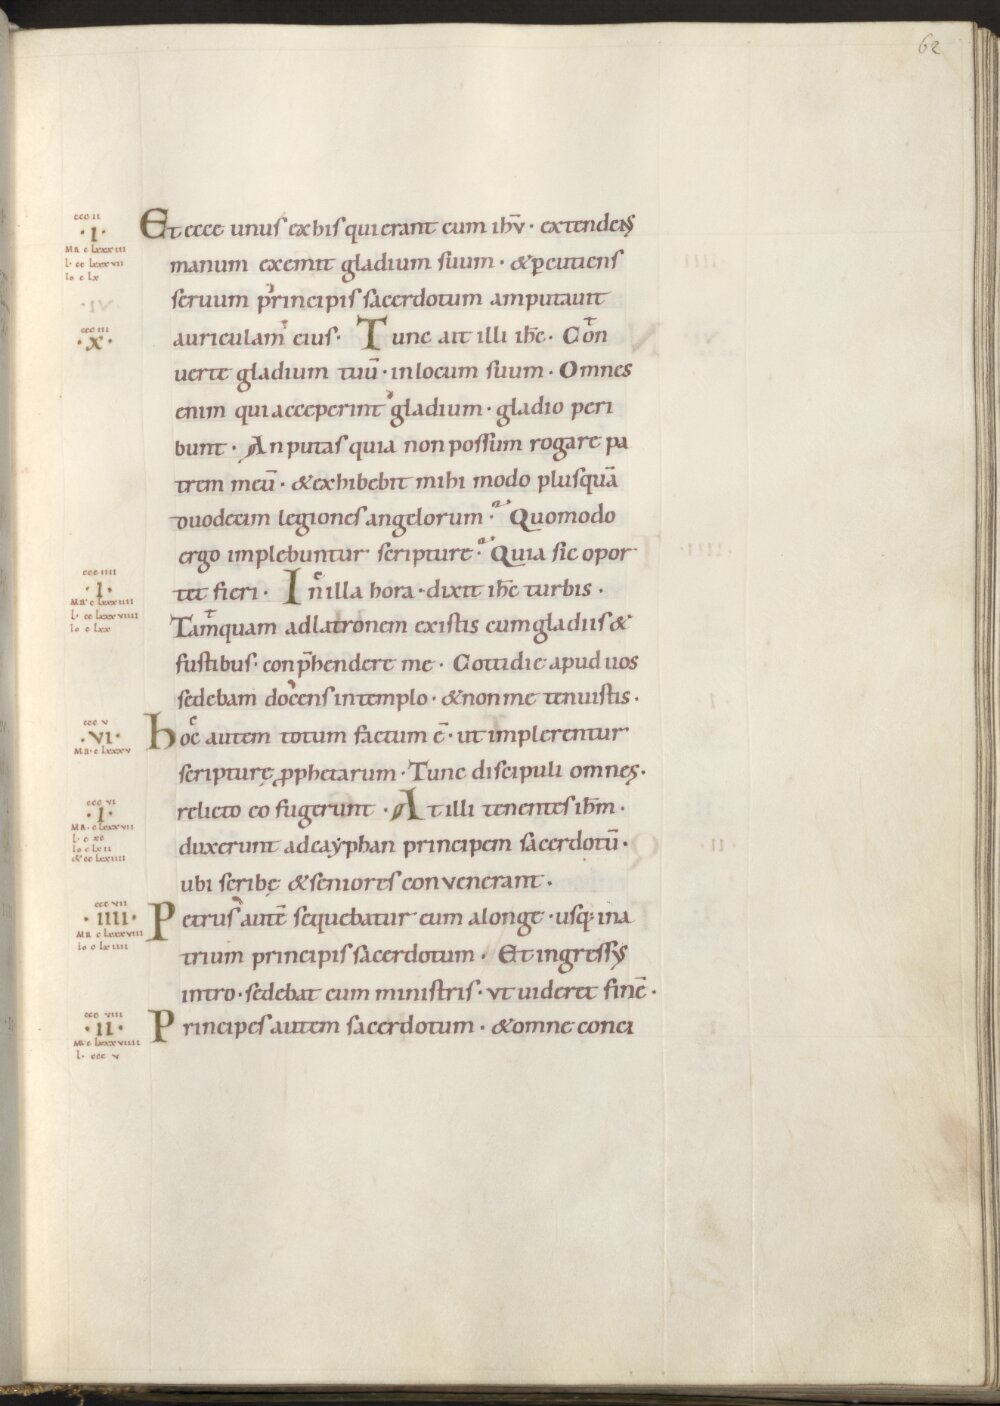 62
Et ecce unus ex his qui erant cum ihv̄ · extendens
manum exemit gladium suum · & percutiens
seruum principis sacerdotum amputauit
auriculam eius · Tunc ait illi ihc̄ · Con
uerte gladium tuū · in locum suum · Omnes
enim qui acceperint gladium · gladio peri
bunt · An putas quia non possum rogare pa
trem meū · & exhibebit mihi modo plusquā
duodecim legiones angelorum · Quomodo
ergo implebuntur scripture · Quia sic opor
tet fieri · In illa hora · dixit ihc̄ turbis ·
Tamquam ad latronem existis cum gladiis &
fustibus · conp̄hendere me · Cottidie apud uos
sedebam docens in templo · & non me tenuistis ·
hoc autem totum factum ē · ut implerentur
scripturę ꝓphetarum · Tunc discipuli omnes ·
relicto eo fugerunt · At illi tenentes ihm̄ ·
duxerunt ad cayphan principem sacerdotū ·
ubi scribę & seniores convenerant ·
Petrus autē sequebatur eum a longe · usq; in a
trium principis sacerdotum · Et ingressus
intro · sedebat cum ministris · vt uideret finē ·
Principes autem sacerdotum · & omne conci
ccc ii
· I ·
MR c lxxxiii
l · cc lxxxvii
Io c lx
ccc iii
· X ·
ccc iiii
· I ·
MR · c lxxxiiii
l · cc lxxxviiii
Io c lxx
ccc v
· VI ·
MR · c lxxxv
ccc vi
· I ·
MR · c lxxxvii
ccc vii
· IIII ·
MR c lxxxviii
Io c lxiiii
ccc viii
· II ·
MR c lxxxviiii
l · ccc v